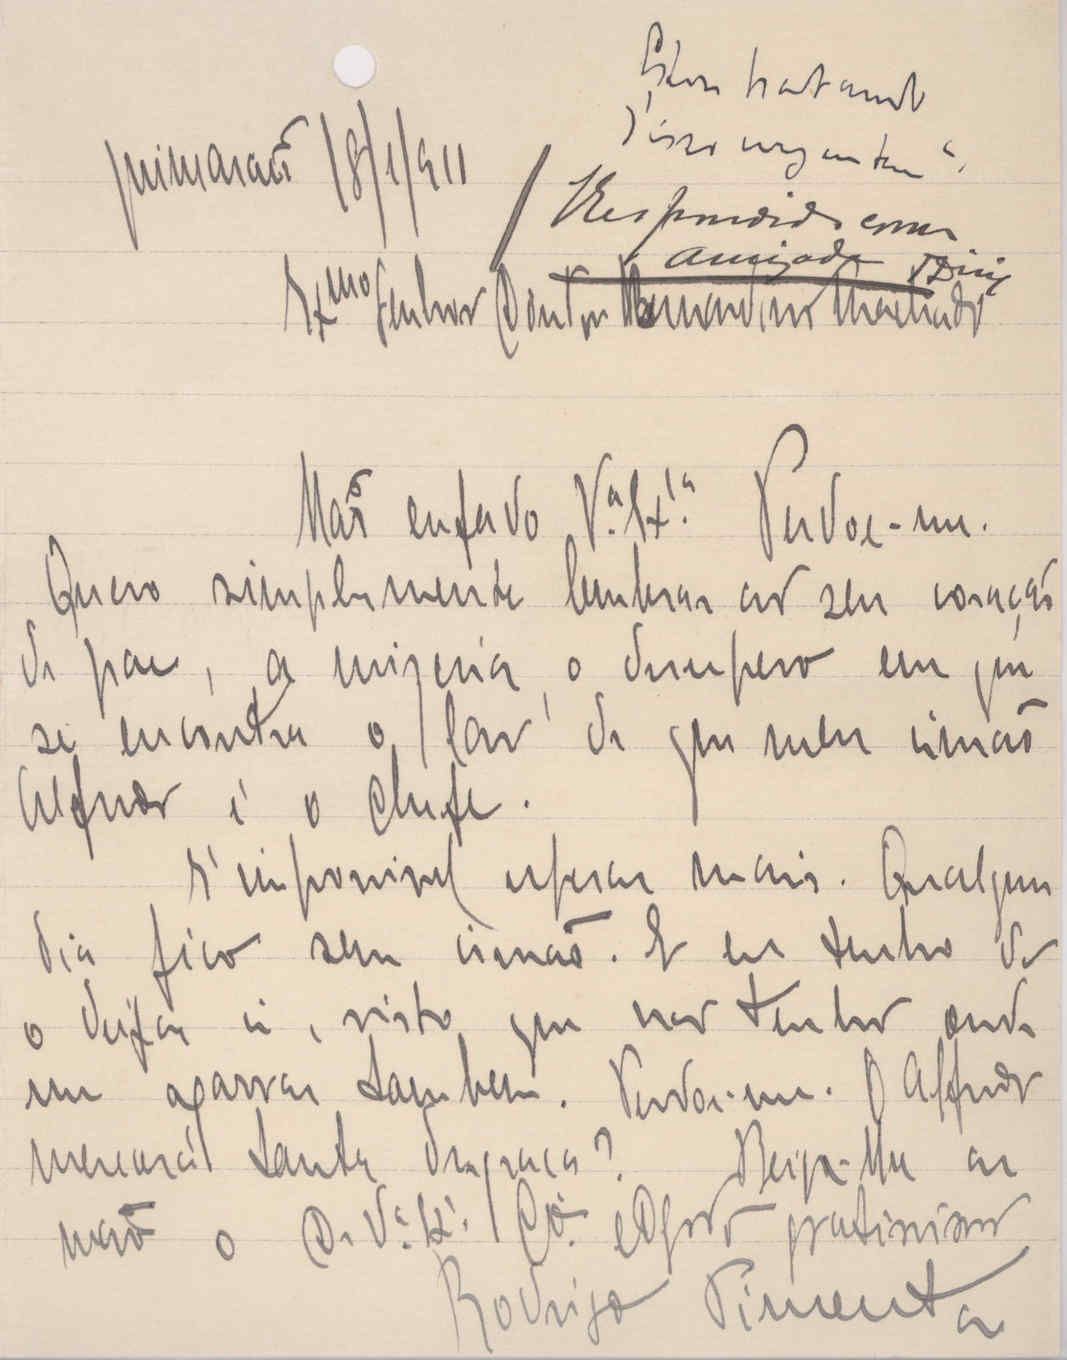 Estou tratando
d'isso urgente".
Respondido com
amizade
Guimarães 18/1/911
Exmo Senhor Doutor Bernardino Machado
Não enfado V.ª Ex.ia Perdoe-me.
Quero simplesmente lembrar ao seu coração
de pae, a mizeria, o desespero em que
se encontra o lar de que meu irmão
Alfredo é o chefe.
E' impossivel esperar mais. Qualquer
dia fico sem irmão. E eu tenho de
o deixar ir, visto que não tenho onde
me agarrar tambem. Perdoe-me. O Alfredo
merecerá tanta desgraça? Beija-lhe as
mãos o De V.ª Ex.ª
Rodrigo Pimenta